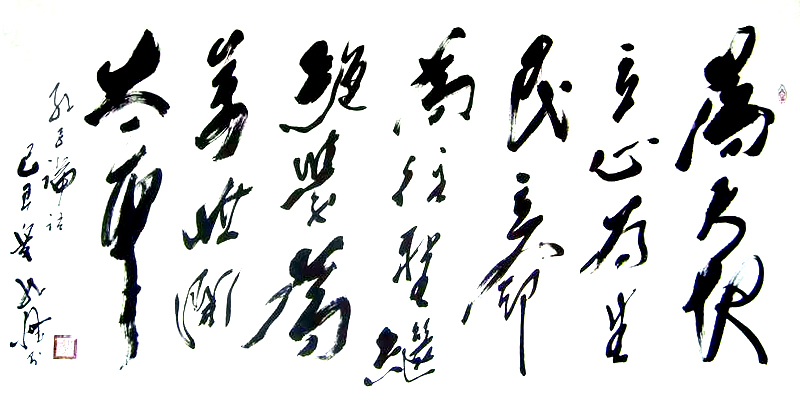 為天地
立心為生
民立命
為往聖繼
絕學為
萬世開
太平
孔子論語
己丑